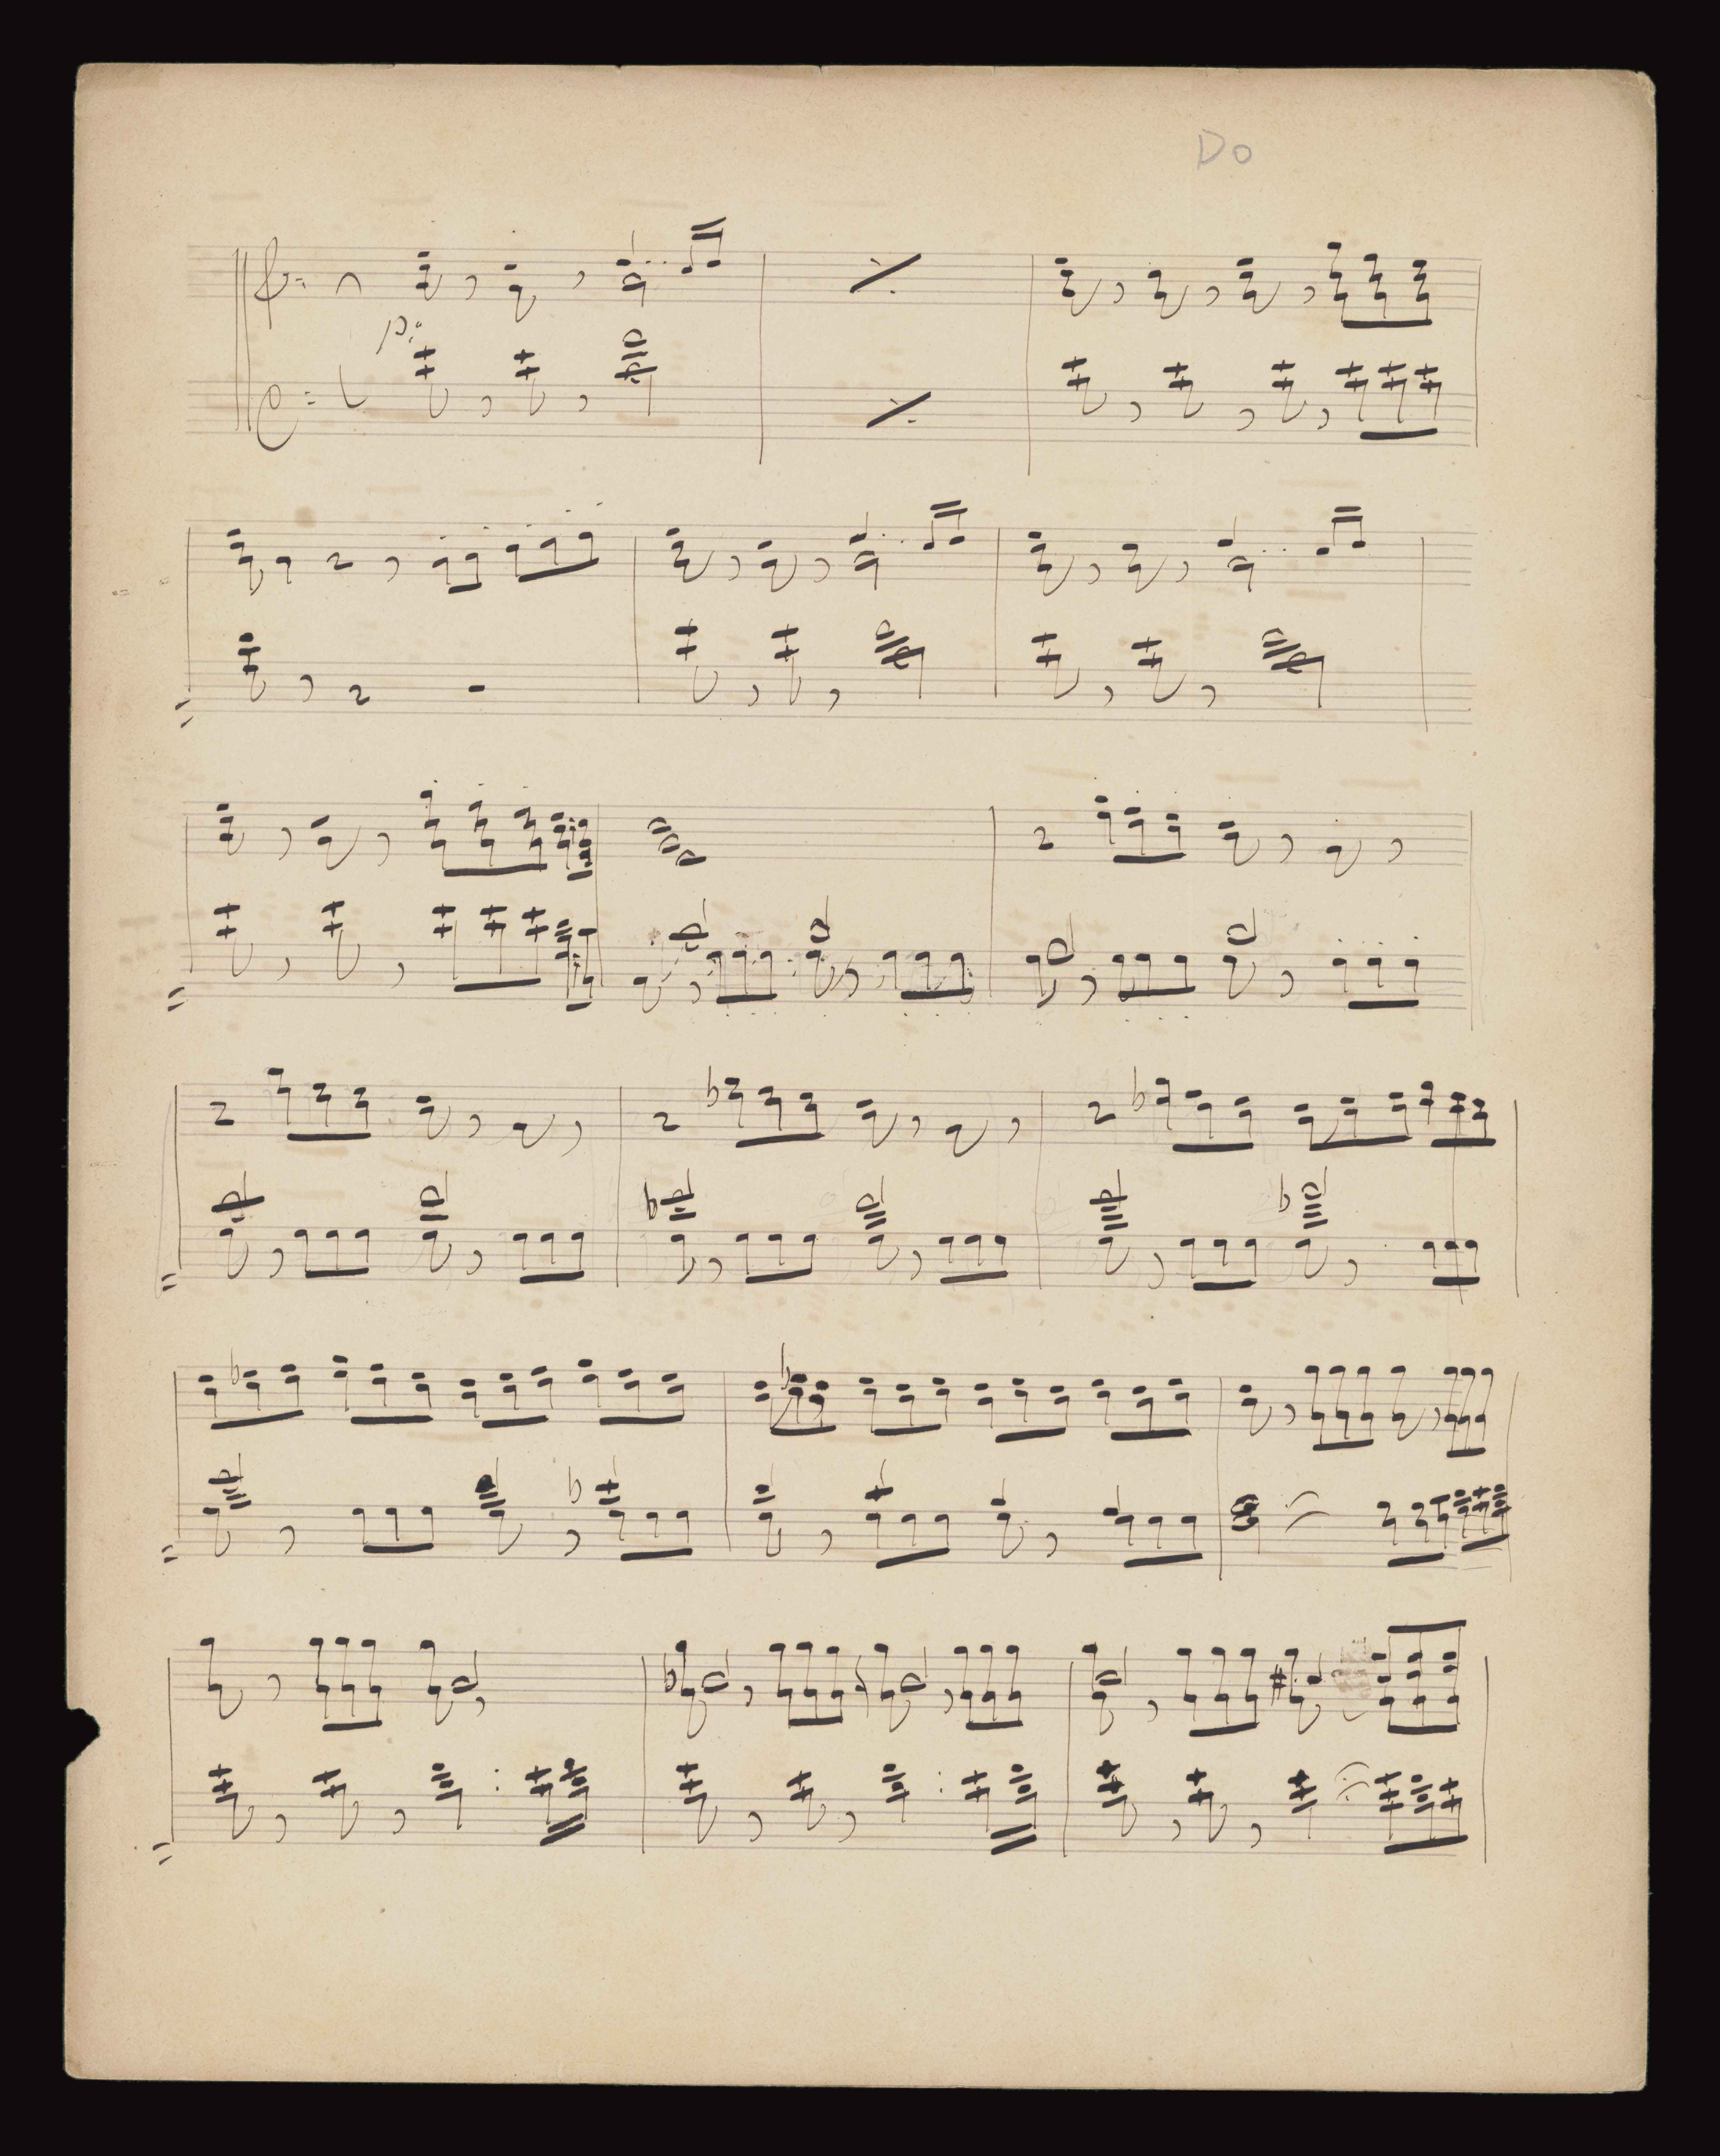 Do
p: